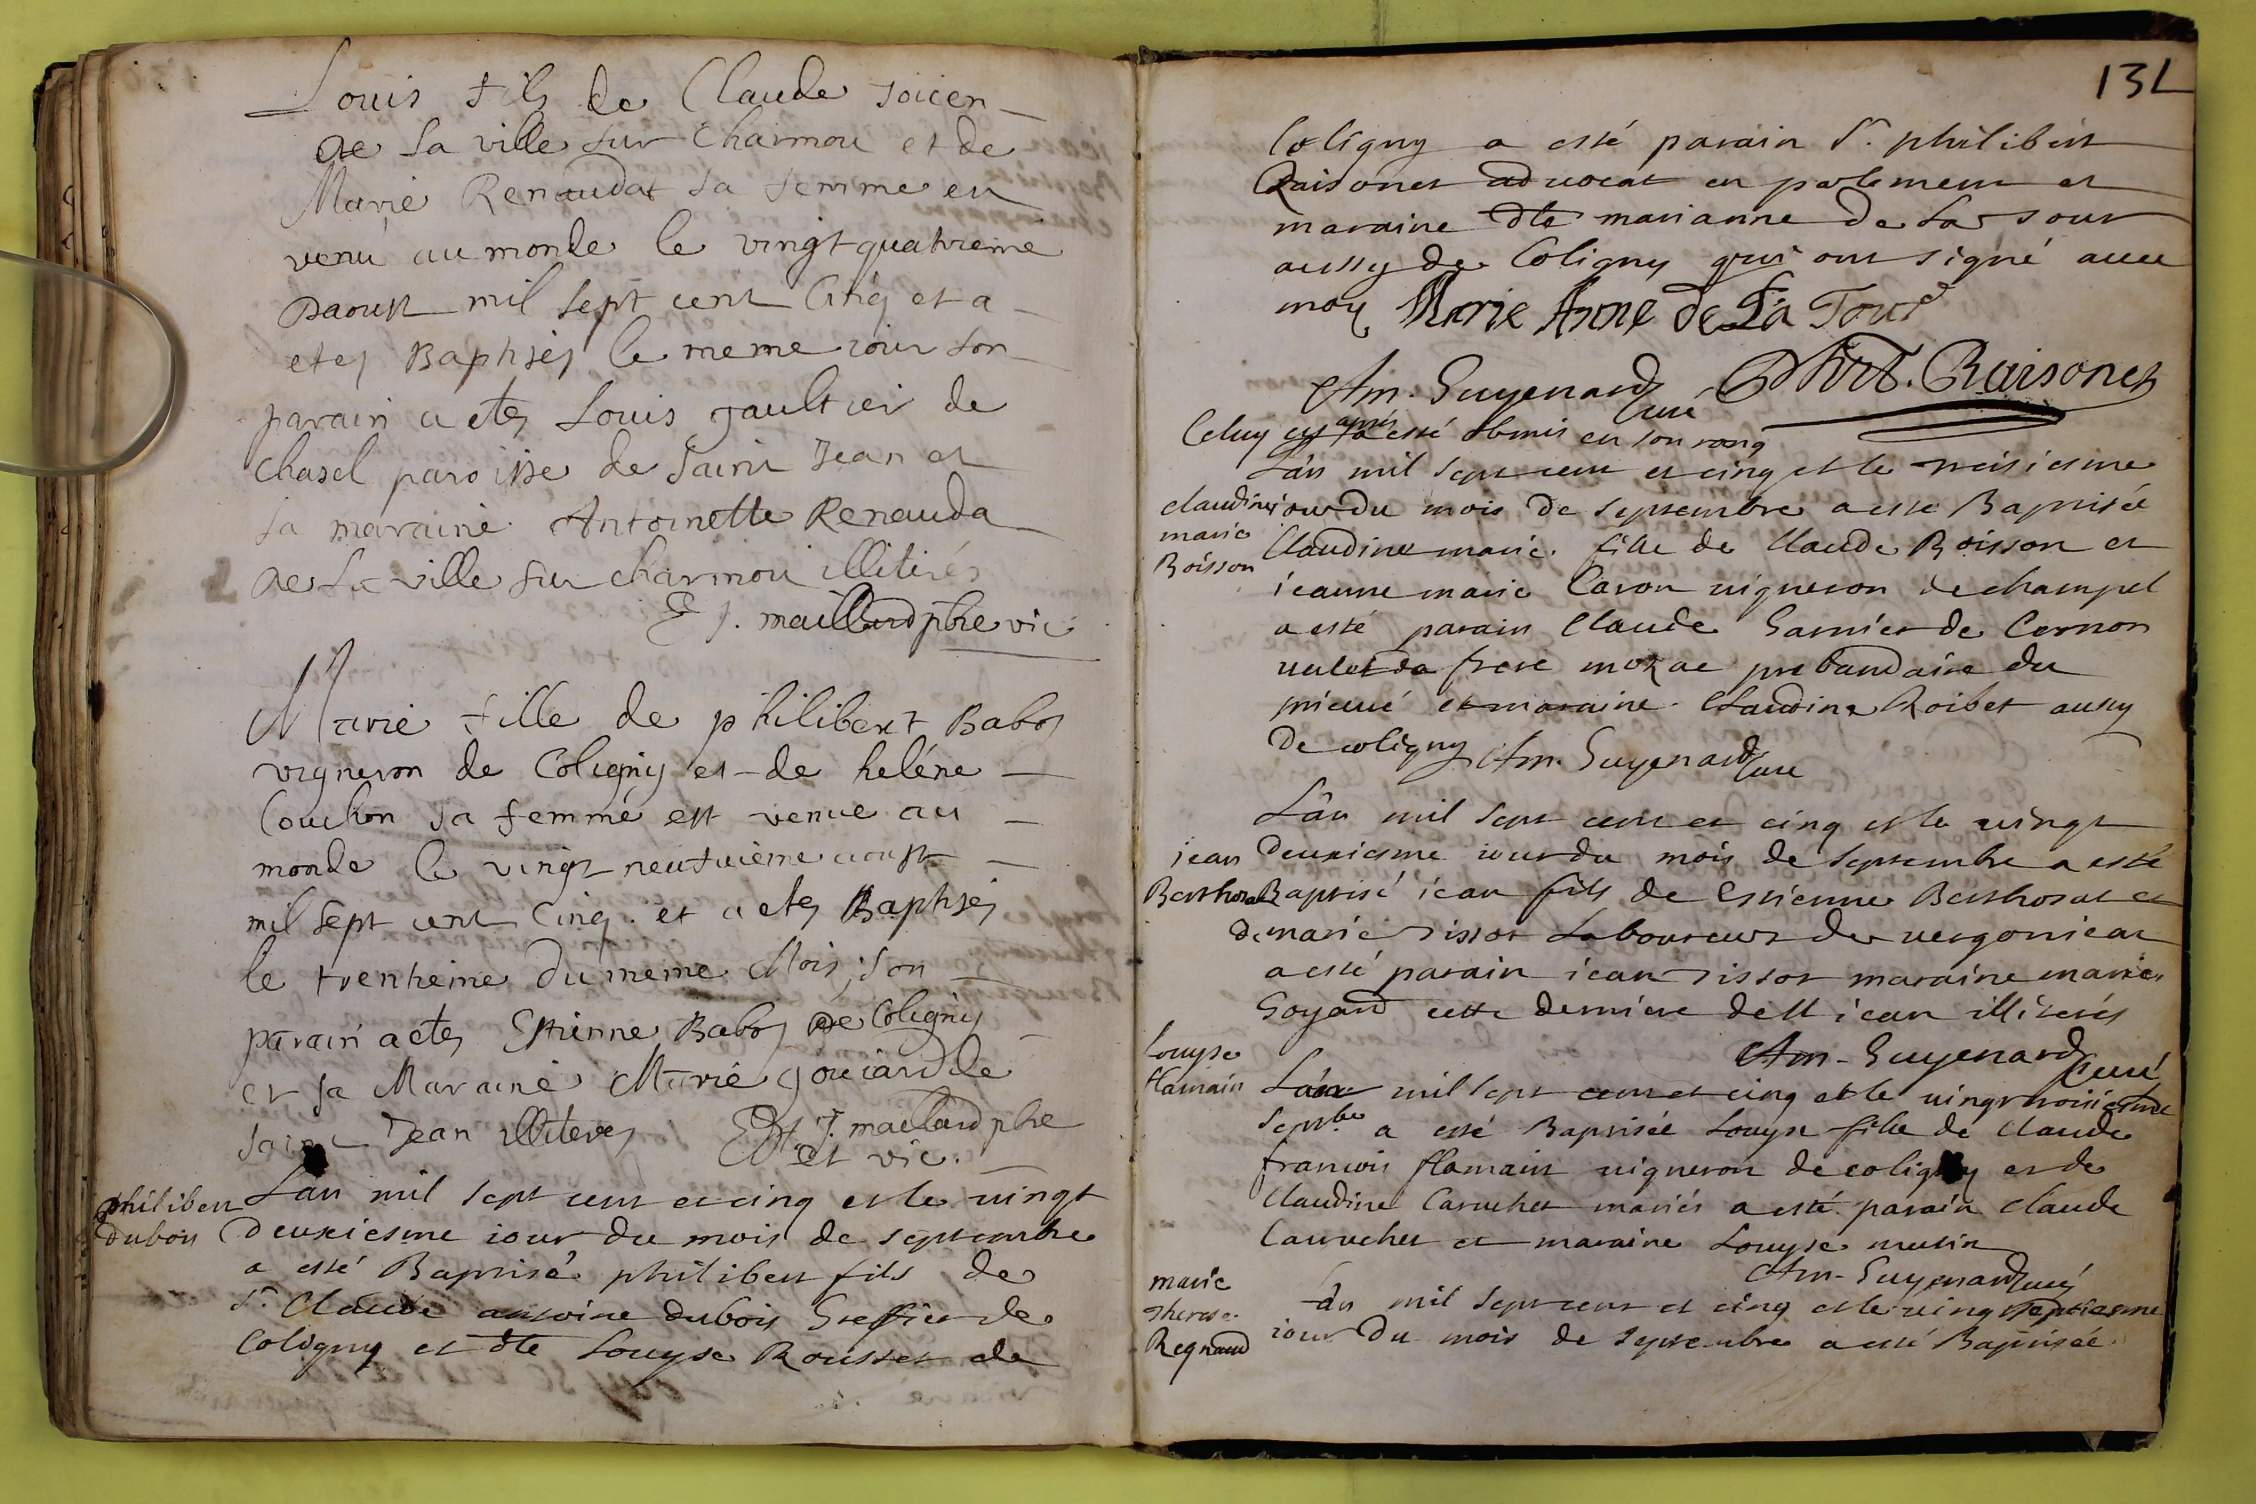 Louis fils de Claude Joicen
de la ville sur Charmou et de
Marie Renaudat sa femme en
venu au monde le vingt quatrieme
Daoust mil sept cent Cinq et a
etez Baptisez le meme iour son
parain a etez Louis gaultier de
Chasel paroisse de Saint Jean et
sa maraine Antoinette Renauda
de la ville sur charmou illiterés
E J. maillard pbre vic
Marie fille de philibert Baboz
vigneron de Coligny et de heléne
Couchon sa femme est venue au
monde le vingt neufvième aoust
mil sept cent Cinq et a etez Baptisez
le trentieme Du meme Mois, son
parain a etez Estienne Baboz de Coligny
et sa Maraine Marie goüiard de
saint Jean illiteres E J. maillard pbre
et vic.
philibert
dubois
Lan mil sept cent et cinq et le vingt
deuxiesme iour du mois de septembre
a esté Baptisé philibert fils de
Sr. Claude antoine dubois Greffier de
Coligny et dlle Louyse Rousset de
131
Coligny a esté parain Sr. philibert
Raisonet advocat en parlement et
maraine dlle marianne de la tour
aussy de Coligny qui ont signé avec
moy Marie Anne de La Tour
Am. Guyenard Curé Phirt. Raisonet
Celuy cy apres a esté obmis en son rang
Lan mil sept cent et cinq et le treisiesme
claudine
marie
Boisson
iour du mois de septembre a esté Baptisée
Claudine marie fille de Claude Boisson et
ieanne marie Caron vigneron de champel
a esté parain Claude Garnier de Cernon
valet da frere moRae prebandaire du
prieuré et maraine Claudine Roibet aussy
de coligny Am. Guyenard Curé
Lân mil sept cent et cinq et le vingt
iean
Berthosat
deuxiesme iour du mois de septembre a esté
Baptisé iean fils de Estienne Berthosat et
de marie tissot Laboureur de vergonieat
a esté parain iean tissot maraine marie
Goyard cette derniere de St iean illiterés
Am. Guyenard Curé
Louyse
flamain
Lân mil sept cent et cinq et le vingt troisiesme
septbre a esté Baptisée Louyse fille de Claude
francois flamain vigneron de coligny et de
Claudine Caruchet mariés a esté parain Claude
Carruchet et maraine Louyse mutin
Am. Guyenard Curé
marie
therese
Regnaud
Lân mil sept cent et cinq et le vingt septiesme
iour du mois de septembre a esté Baptisée